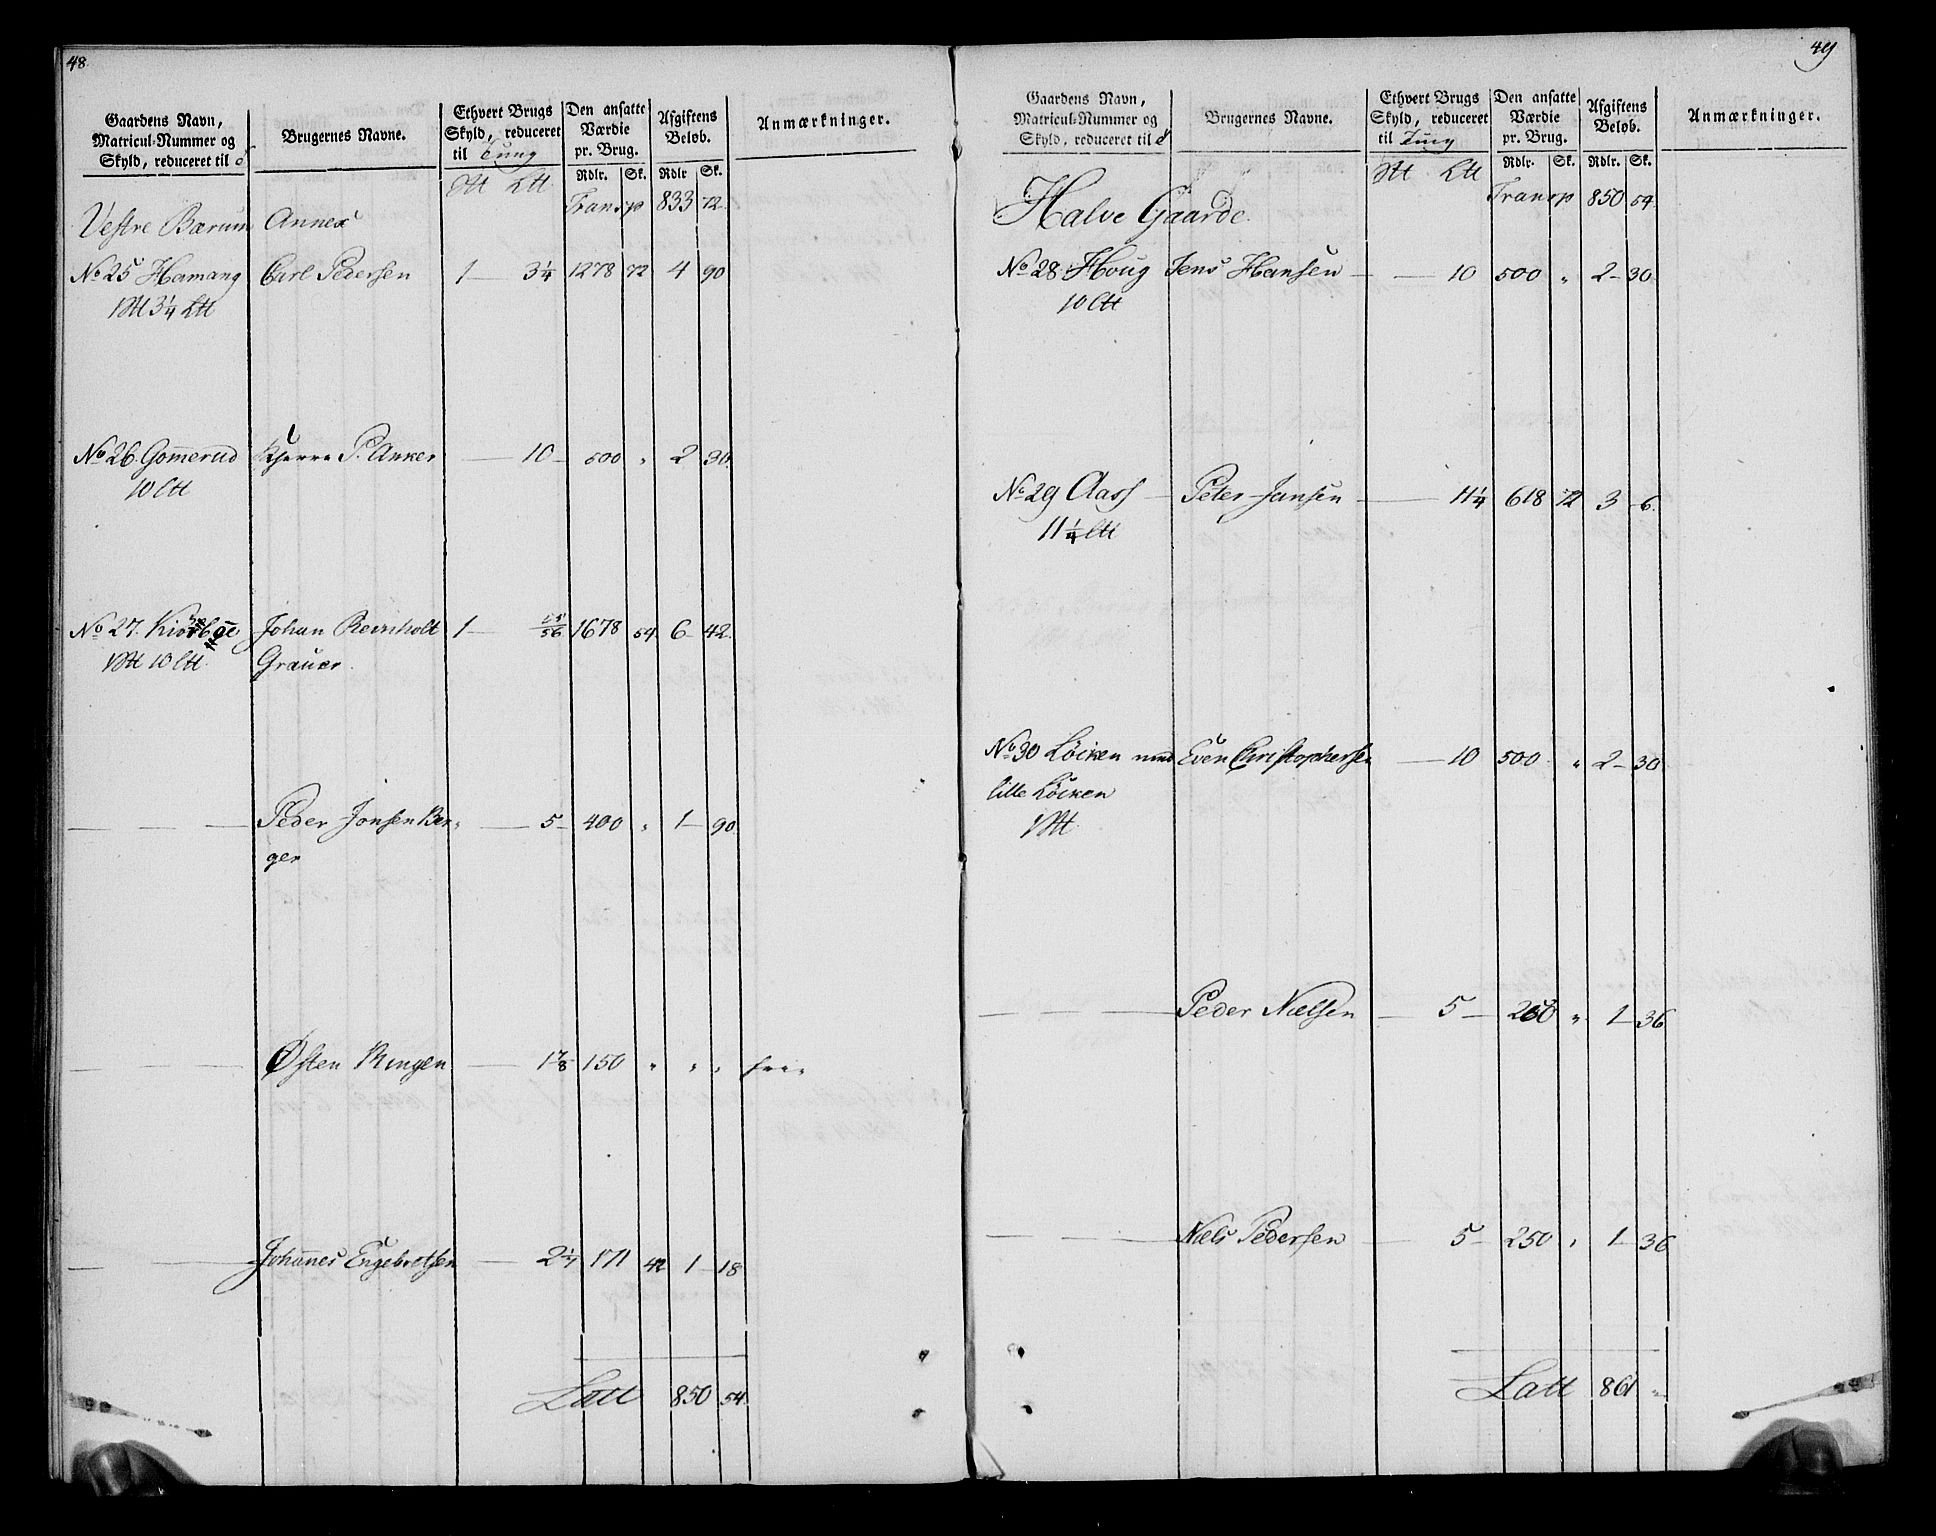 48
Gaardens Navn, Matricul-Nummer og Skyld, reduceret til | Brugernes Navne. | Ethvert Brugs Skyld, reduceret til Tung | Den ansatte Værdie pr. Brug. | Afgiftens Beløb. | Anmærkninger.
Rdlr. Sk. Rdlr Sk.
Transp 833 72
Vestre Bærum Annex
No 25 Hamang Carl Pedersen 1 — 3¼ 1278 72 4 90
1 3¼
No 26 Gomerud P. Anker — 10 — 500 " 2 30.
10
No 27. Johan Reinholt 1 — 1678 54 6 — 42
10 Grauer.
— — — Peder Jonsen Ber- — 5 — 400 " 1 — 90
ger
— — — Østen Ringen — 1⅞ 150 " " " frie
— — — Johannes Engebretsen — 171 42 1 — 18
Latt 850 54.
49
Gaardens Navn, Matricul-Nummer og Skyld, reduceret til | Brugernes Navne. | Ethvert Brugs Skyld, reduceret til Tung | Den ansatte Værdie pr. Brug. | Afgiftens Beløb. | Anmærkninger.
Rdlr. Sk. Rdlr. Sk.
Transp 850 54.
Halve Gaarde.
No 28 Houg Jens Hansen — 10 500 " 2 — 30
10
No 29 Aass — Peter Jansen — 11¼ 618 72 3 — 6.
11¼
No 30 Løcken med Even Christophersen — 10 500 " 2 — 30
lille Løcken
1
— — — Peder Nielsen — 5 — 250 " 1 — 36
— — — Niels Pedersen — 5 — 250 " 1 — 36
Latt 861 "